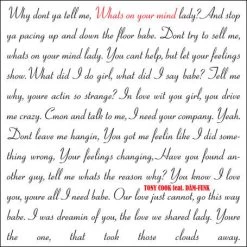 Why dont ya tell me, Whats on your mind lady?And stop
ya pacing up and down the floor babe. Dont try to sell me,
whats on your mind lady. You cant help, but let your feelings
show. What did I do girl, what did I say babe? Tell me
why, youre actin so strange? In love wit you girl, you drive
me crazy. Cmon and talk to me, I need your company. Yeah.
Dont leave me hangin, You got me feelin like I did som-
thing wrong, Your feelings changing, Have you found an-
other guy, tell me whats the reason why? You know I love
you, youre all I need babe. Our love just cannot, go this way
babe. I was dreamin of you, the love we shared lady. Youre
the one, that took those clouds away.
TONY COOK feat. DAM-FUNK